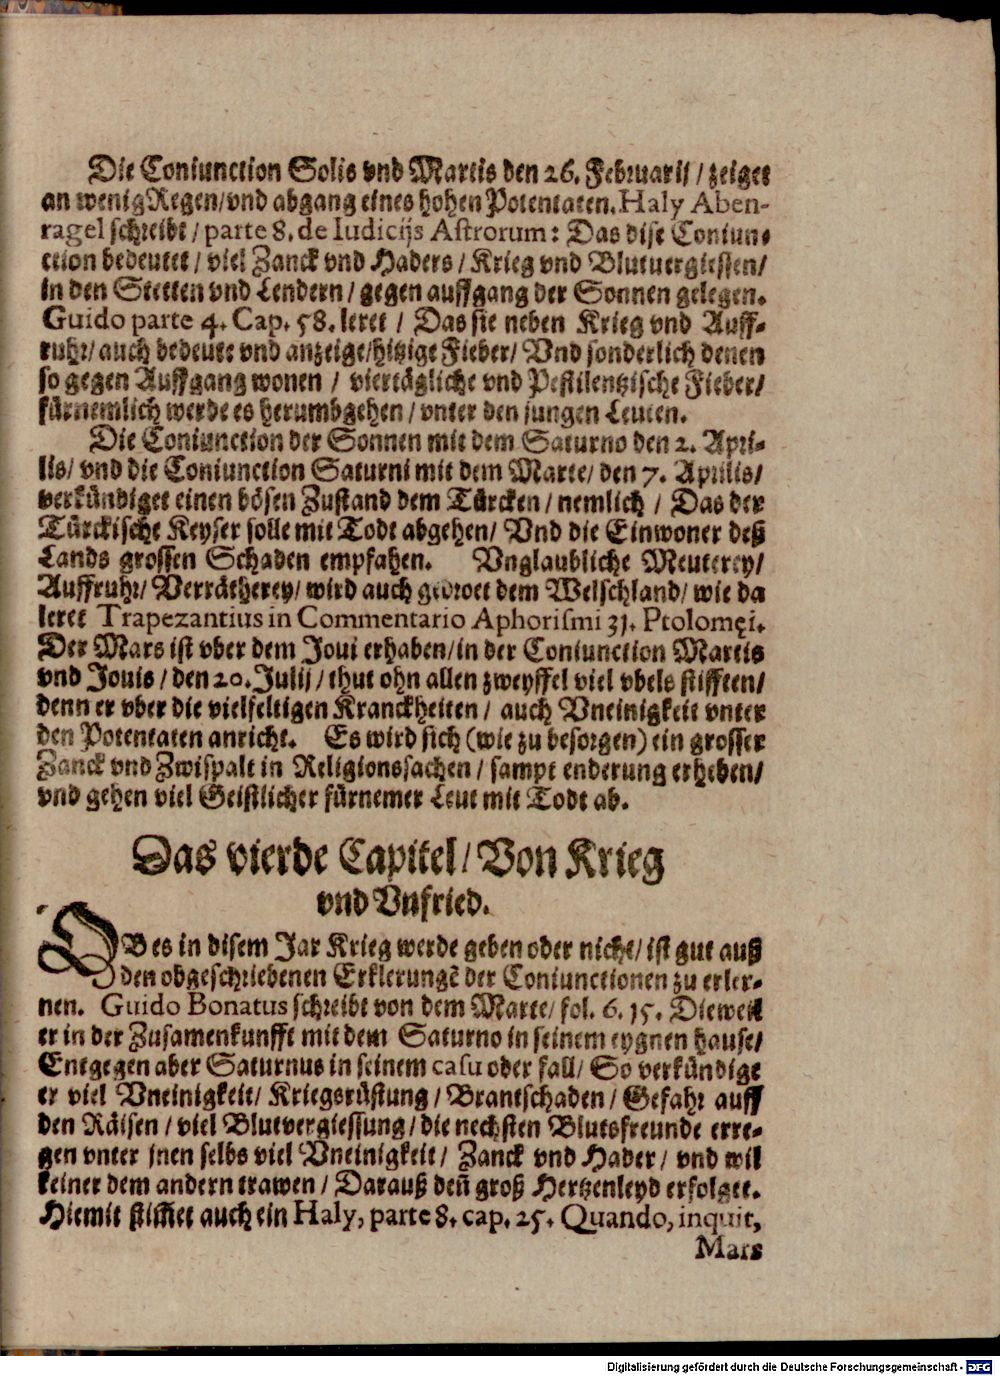 Die Coniunction Solis vnd Martis den 26. Februarij / zeiget
an wenig Regen/vnd abgang eines hohen Potentaten. Haly Aben-
ragel schreibt / parte 8. de Iudicijs Astrorum: Das dise Coniun-
ction bedeutet / viel Zanck vnd Haders / Krieg vnd Blutuergiessen/
in den Stetten vnd Lendern / gegen auffgang der Sonnen gelegen.
Guido parte 4. Cap. 58. leret / Das sie neben Krieg vnd Auff-
ruhr/auch bedeute vnd anzeige/hitzige Fieber/ Vnd sonderlich denen
so gegen Auffgang wonen / viertägliche vnd Pestilentzische Fieber/
fürnemlich werde es herumbgehen / vnter den jungen Leuten.
Die Coniunction der Sonnen mit dem Saturno den 2. Apri-
lis/ vnd die Coniunction Saturni mit dem Marte/ den 7. Aprilis/
verkündiget einen bösen Zustand dem Türcken / nemlich / Das der
Türckische Keyser solle mit Todt abgehen/ Vnd die Einwoner deß
Lands grossen Schaden empfahen. Vnglaubliche Meuterey/
Auffruhr/ Verrätherey/ wird auch gedroet dem Welschland/ wie da
leret Trapezantius in Commentario Aphorismi 31. Ptolomęi.
Der Mars ist vber dem Joui erhaben/in der Coniunction Martis
vnd Jouis / den 20. Julij / thut ohn allen zweyffel viel vbels stifften/
denn er vber die vielfeltigen Kranckheiten / auch Vneinigkeit vnter
den Potentaten anricht. Es wird sich (wie zu besorgen) ein grosser
Zanck vnd Zwispalt in Religionssachen / sampt enderung erheben/
vnd gehen viel Geistlicher fürnemer Leut mit Todt ab.
Das vierde Capitel/ Von Krieg
vnd Vnfried.
OB es in disem Jar Krieg werde geben oder nicht/ ist gut auß
den obgeschriebenen Erklerungē der Coniunctionen zu erler-
nen. Guido Bonatus schreibt von dem Marte/ fol. 6. 15. Dieweil
er in der Zusamenkunfft mit dem Saturno in seinem eygnen hause/
Entgegen aber Saturnus in seinem casu oder fall/ So verkündige
er viel Vneinigkeit/ Kriegsrüstung / Brantschaden / Gefahr auff
den Räisen / viel Blutvergiessung / die nechsten Blutsfreunde erre-
gen vnter jnen selbs viel Vneinigkeit / Zanck vnd Hader / vnd wil
keiner dem andern trawen / Darauß deñ groß Hertzenleyd erfolget.
Hiemit stim̃et auch ein Haly, parte 8. cap. 25. Quando, inquit,
Mars
Digitalisierung gefördert durch die Deutsche Forschungsgemeinschaft - DFG